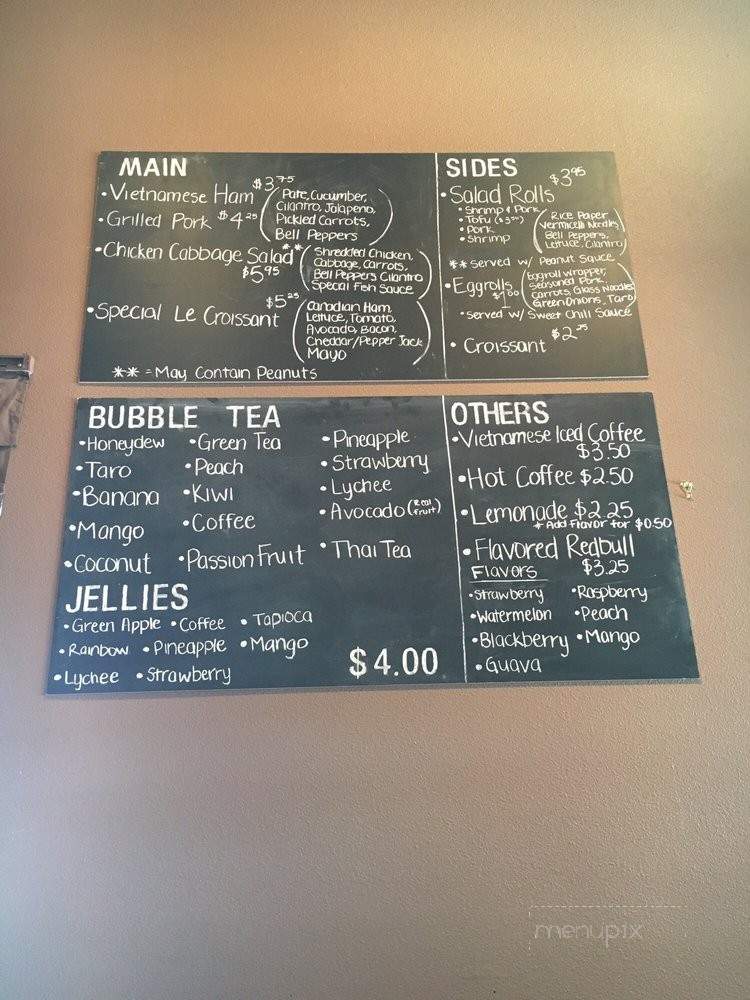 MAIN
•Vietnamese Ham $3.75
•Grilled Pork $4.25
(Pate, Cucumber,
Cilantro, Jalapeno,
Pickled Carrots,
Bell Peppers)
•Chicken Cabbage Salad**
$5.95
(Shredded Chicken,
Cabbage, Carrots,
Bell Peppers Cilantro
Special Fish Sauce)
•Special Le Croissant $5.25
(Canadian Ham,
Lettuce, Tomato,
Avocado, Bacon,
Cheddar/Pepper Jack
Mayo)
** = May Contain Peanuts
SIDES
•Salad Rolls $3.95
•Shrimp & Pork
•Tofu
•Pork
•Shrimp
(Rice Paper
Vermicelli Noodles
Bell Peppers,
Lettuce, Cilantro)
**served w/ Peanut Sauce
•Eggrolls
(Eggroll wrapper,
Seasoned Pork,
Carrots, Glass Noodles
Green Onions, Taro)
•served w/ Sweet Chili Sauce
•Croissant $2.25
BUBBLE TEA
•Honeydew •Green Tea •Pineapple
•Taro •Peach •Strawberry
•Banana •Kiwi •Lychee
•Mango •Coffee •Avocado (Real fruit)
•Coconut •Passion Fruit •Thai Tea
JELLIES
•Green Apple •Coffee •Tapioca
•Rainbow •Pineapple •Mango
•Lychee •Strawberry
$4.00
OTHERS
•Vietnamese Iced Coffee
$3.50
•Hot Coffee $2.50
•Lemonade $2.25
+ Add Flavor for $0.50
•Flavored Redbull
Flavors $3.25
•Strawberry •Raspberry
•Watermelon •Peach
•Blackberry •Mango
•Guava
menupix